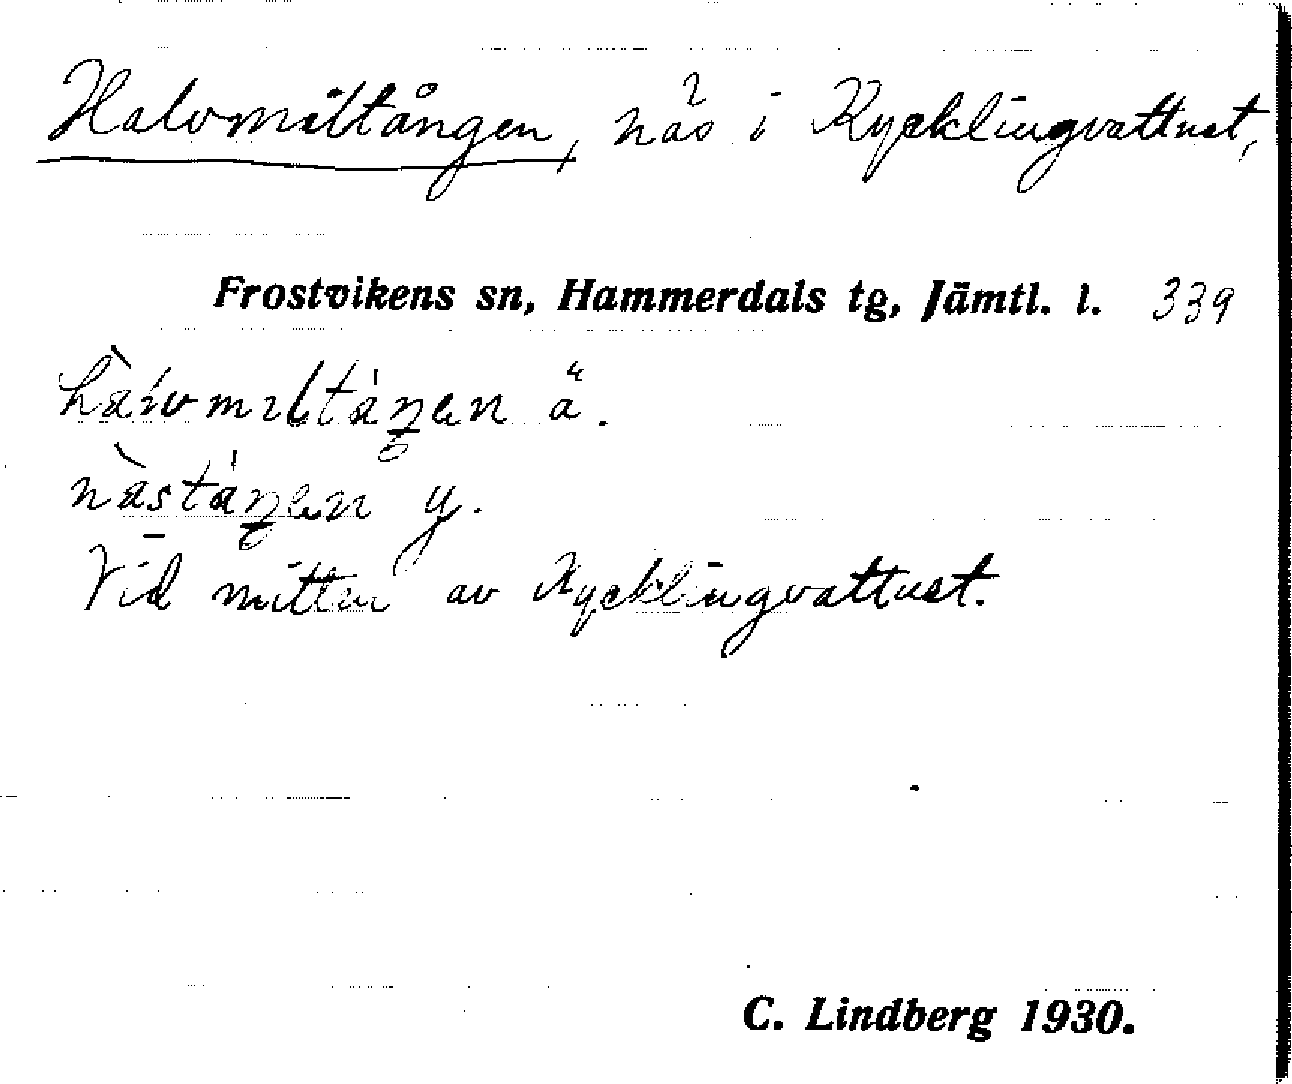 Halvmiltången, näs i Kycklingvattnet,
Frostvikens sn, Hammerdals tg, Jämtl. l. 339
ä.
y.
Vid mitten av Kycklingvattnet.
C. Lindberg 1930.